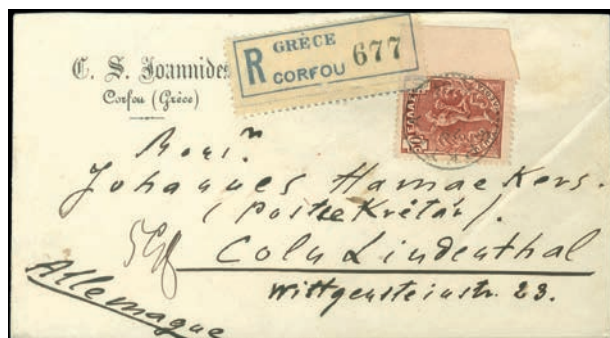 C. S. Joannides
Corfou (Grèce)
R
GRÈCE
CORFOU 677
Monr.
Johannes Hamaekers.
(Postsekretär).
Coln Lindenthal
Wittgensteinstr. 23.
Allemagne